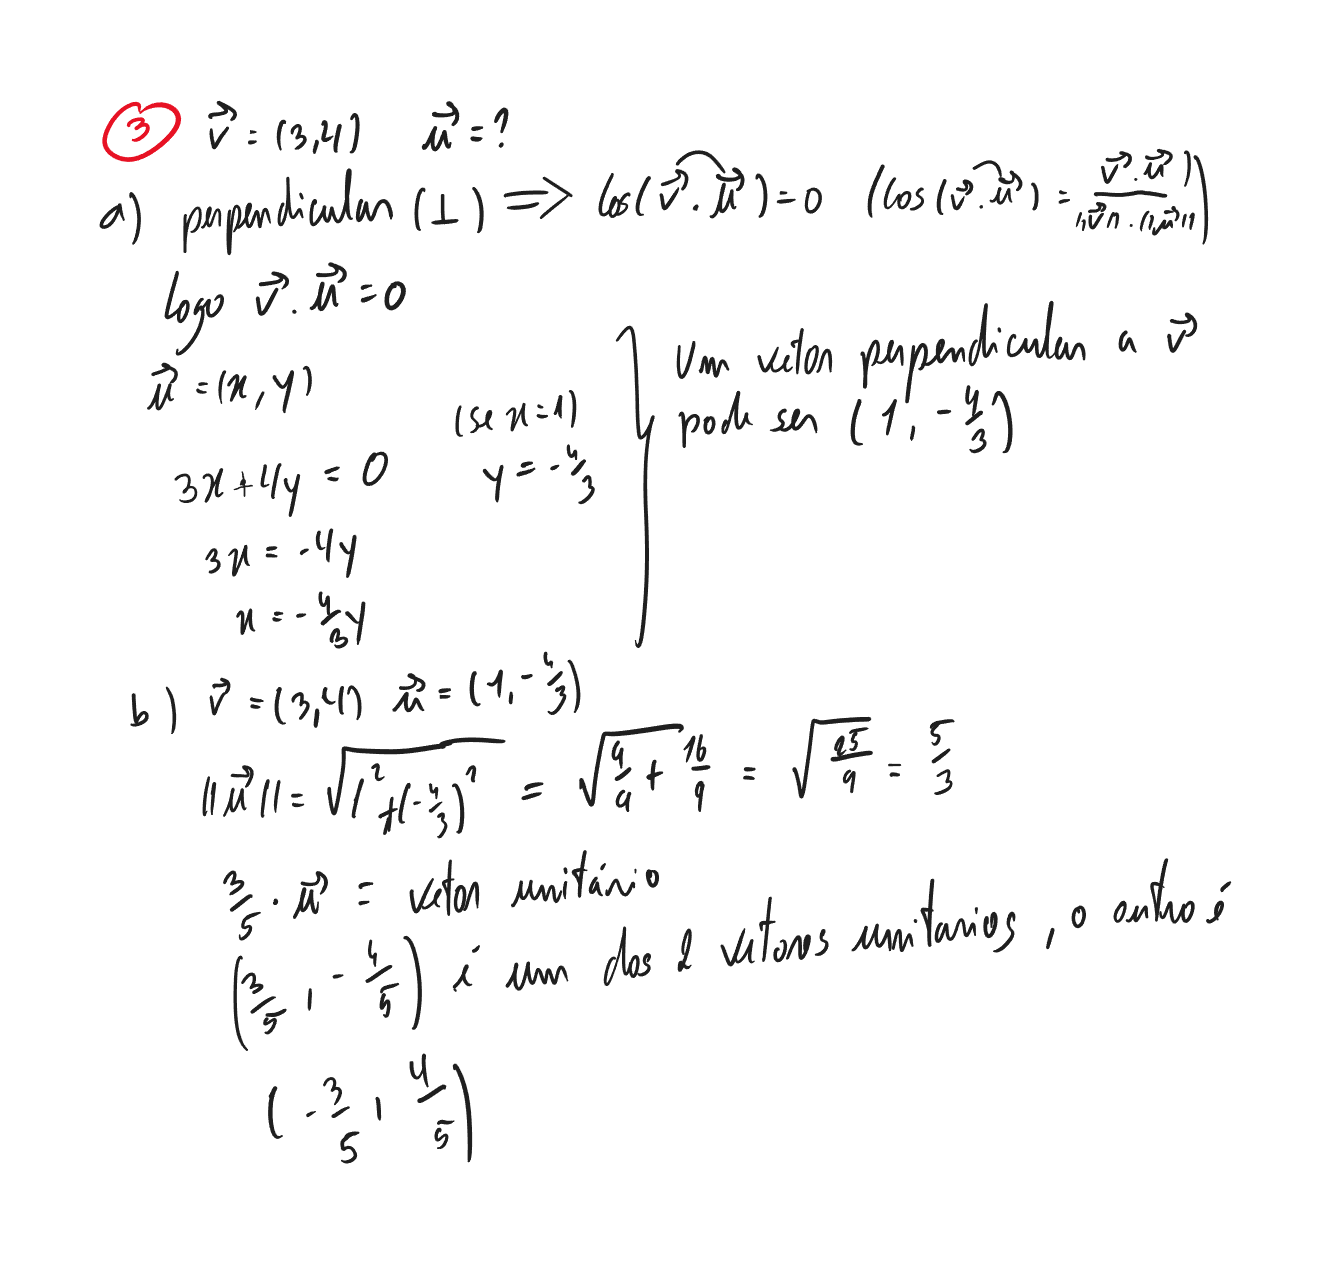 3 v⃗ = (3,4) u⃗ = ?
a) perpendicular (⊥) => cos(v⃗.u⃗) = 0 (cos(v⃗.u⃗) = v⃗.u⃗ / ||v⃗||.||u⃗||)
logo v⃗.u⃗ = 0
u⃗ = (x, y)
3x+4y = 0
3x = -4y
x = -4/3 y
(se x=1)
y = -4/3
Um vetor perpendicular a v⃗
pode ser (1, -4/3)
b) v⃗ = (3,4) u⃗ = (1, -4/3)
||u⃗|| = √(1² + (-4/3)²) = √(9/9 + 16/9) = √(25/9) = 5/3
3/5 . u⃗ = vetor unitário
(3/5, -4/5) é um dos 2 vetores unitarios, o outro é
(-3/5, 4/5)